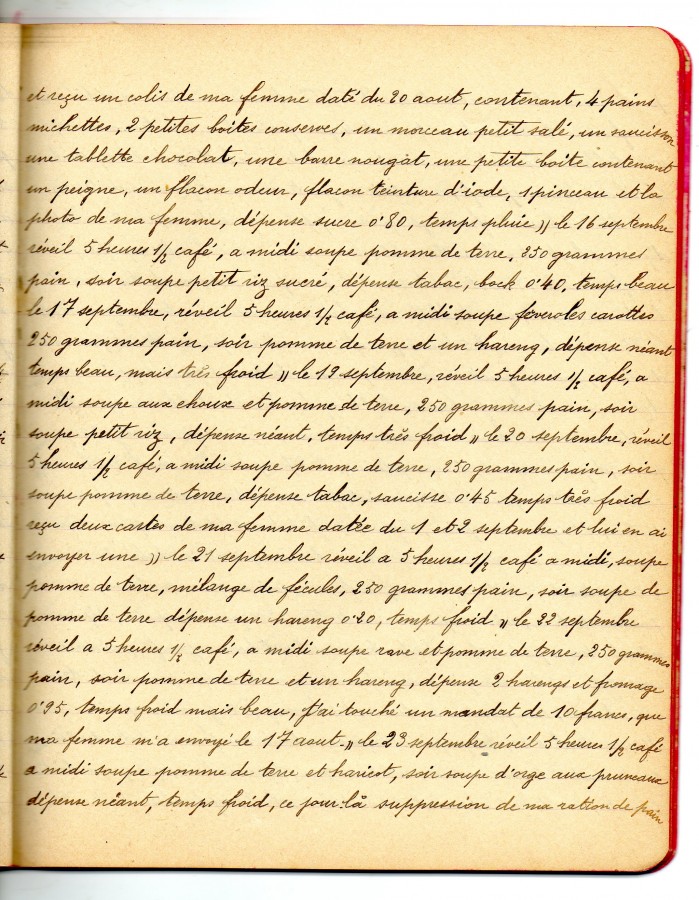 et reçu un colis de ma femme daté du 20 aout, contenant, 4 pains
michettes, 2 petites boites conserves, un morceau petit salé, un saucisson
une tablette chocolat, une barre nougat, une petite boite contenant
un peigne, un flacon odeur, flacon teinture d'iode, 1 pinceau et la
photo de ma femme, dépense sucre 0'80, temps pluie )) le 16 septembre
réveil 5 heures 1/2 café, a midi soupe pomme de terre, 250 grammes
pain, soir soupe petit riz sucré, dépense tabac, bock 0'40, temps beau
le 17 septembre, réveil 5 heures 1/2 café, a midi soupe feveroles carottes
250 grammes pain, soir pomme de terre et un hareng, dépense néant
temps beau, mais très froid )) le 19 septembre, réveil 5 heures 1/2 café, a
midi soupe aux choux et pomme de terre, 250 grammes pain, soir
soupe petit riz, dépense néant, temps très froid )) le 20 septembre, réveil
5 heures 1/2 café, a midi soupe pomme de terre, 250 grammes pain, soir
soupe pomme de terre, dépense tabac, saucisse 0'45 temps très froid
reçu deux cartes de ma femme datée du 1 et 2 septembre et lui en ai
envoyer une )) le 21 septembre réveil a 5 heures 1/2 café a midi, soupe
pomme de terre, mélange de fécules, 250 grammes pain, soir soupe de
pomme de terre dépense un hareng 0'20, temps froid )) le 22 septembre
réveil a 5 heures 1/2 café, a midi soupe rave et pomme de terre, 250 grammes
pain, soir pomme de terre et un hareng, dépense 2 harengs et fromage
0'95, temps froid mais beau, J'ai touché un mandat de 10 francs, que
ma femme m'a envoyé le 17 aout. )) le 23 septembre réveil 5 heures 1/2 café
a midi soupe pomme de terre et haricot, soir soupe d'orge aux pruneaux
dépense néant, temps froid, ce jour-là suppression de ma ration de pain